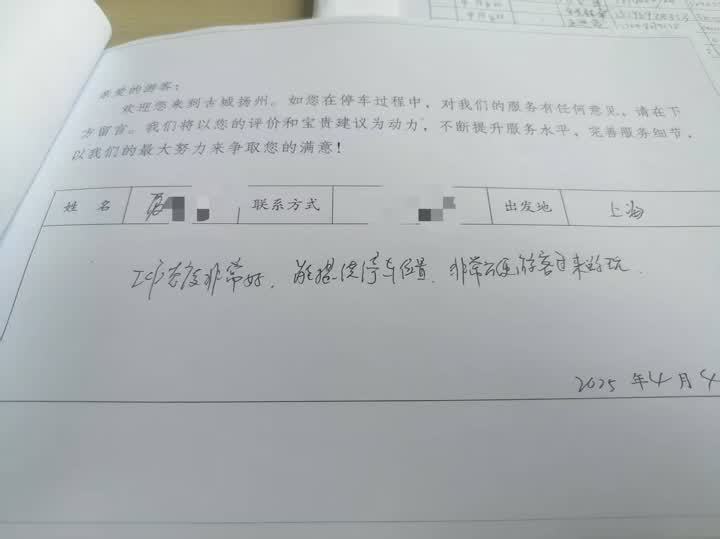 亲爱的游客：
欢迎您来到古城扬州。如您在停车过程中，对我们的服务有任何意见，请在下
方留言。我们将以您的评价和宝贵建议为动力，不断提升服务水平，完善服务细节，
以我们的最大努力来争取您的满意！
姓 名 联系方式 出发地 上海
工作态度非常好，能提供停车位置，非常方便游客自来的玩
2025 年4月4